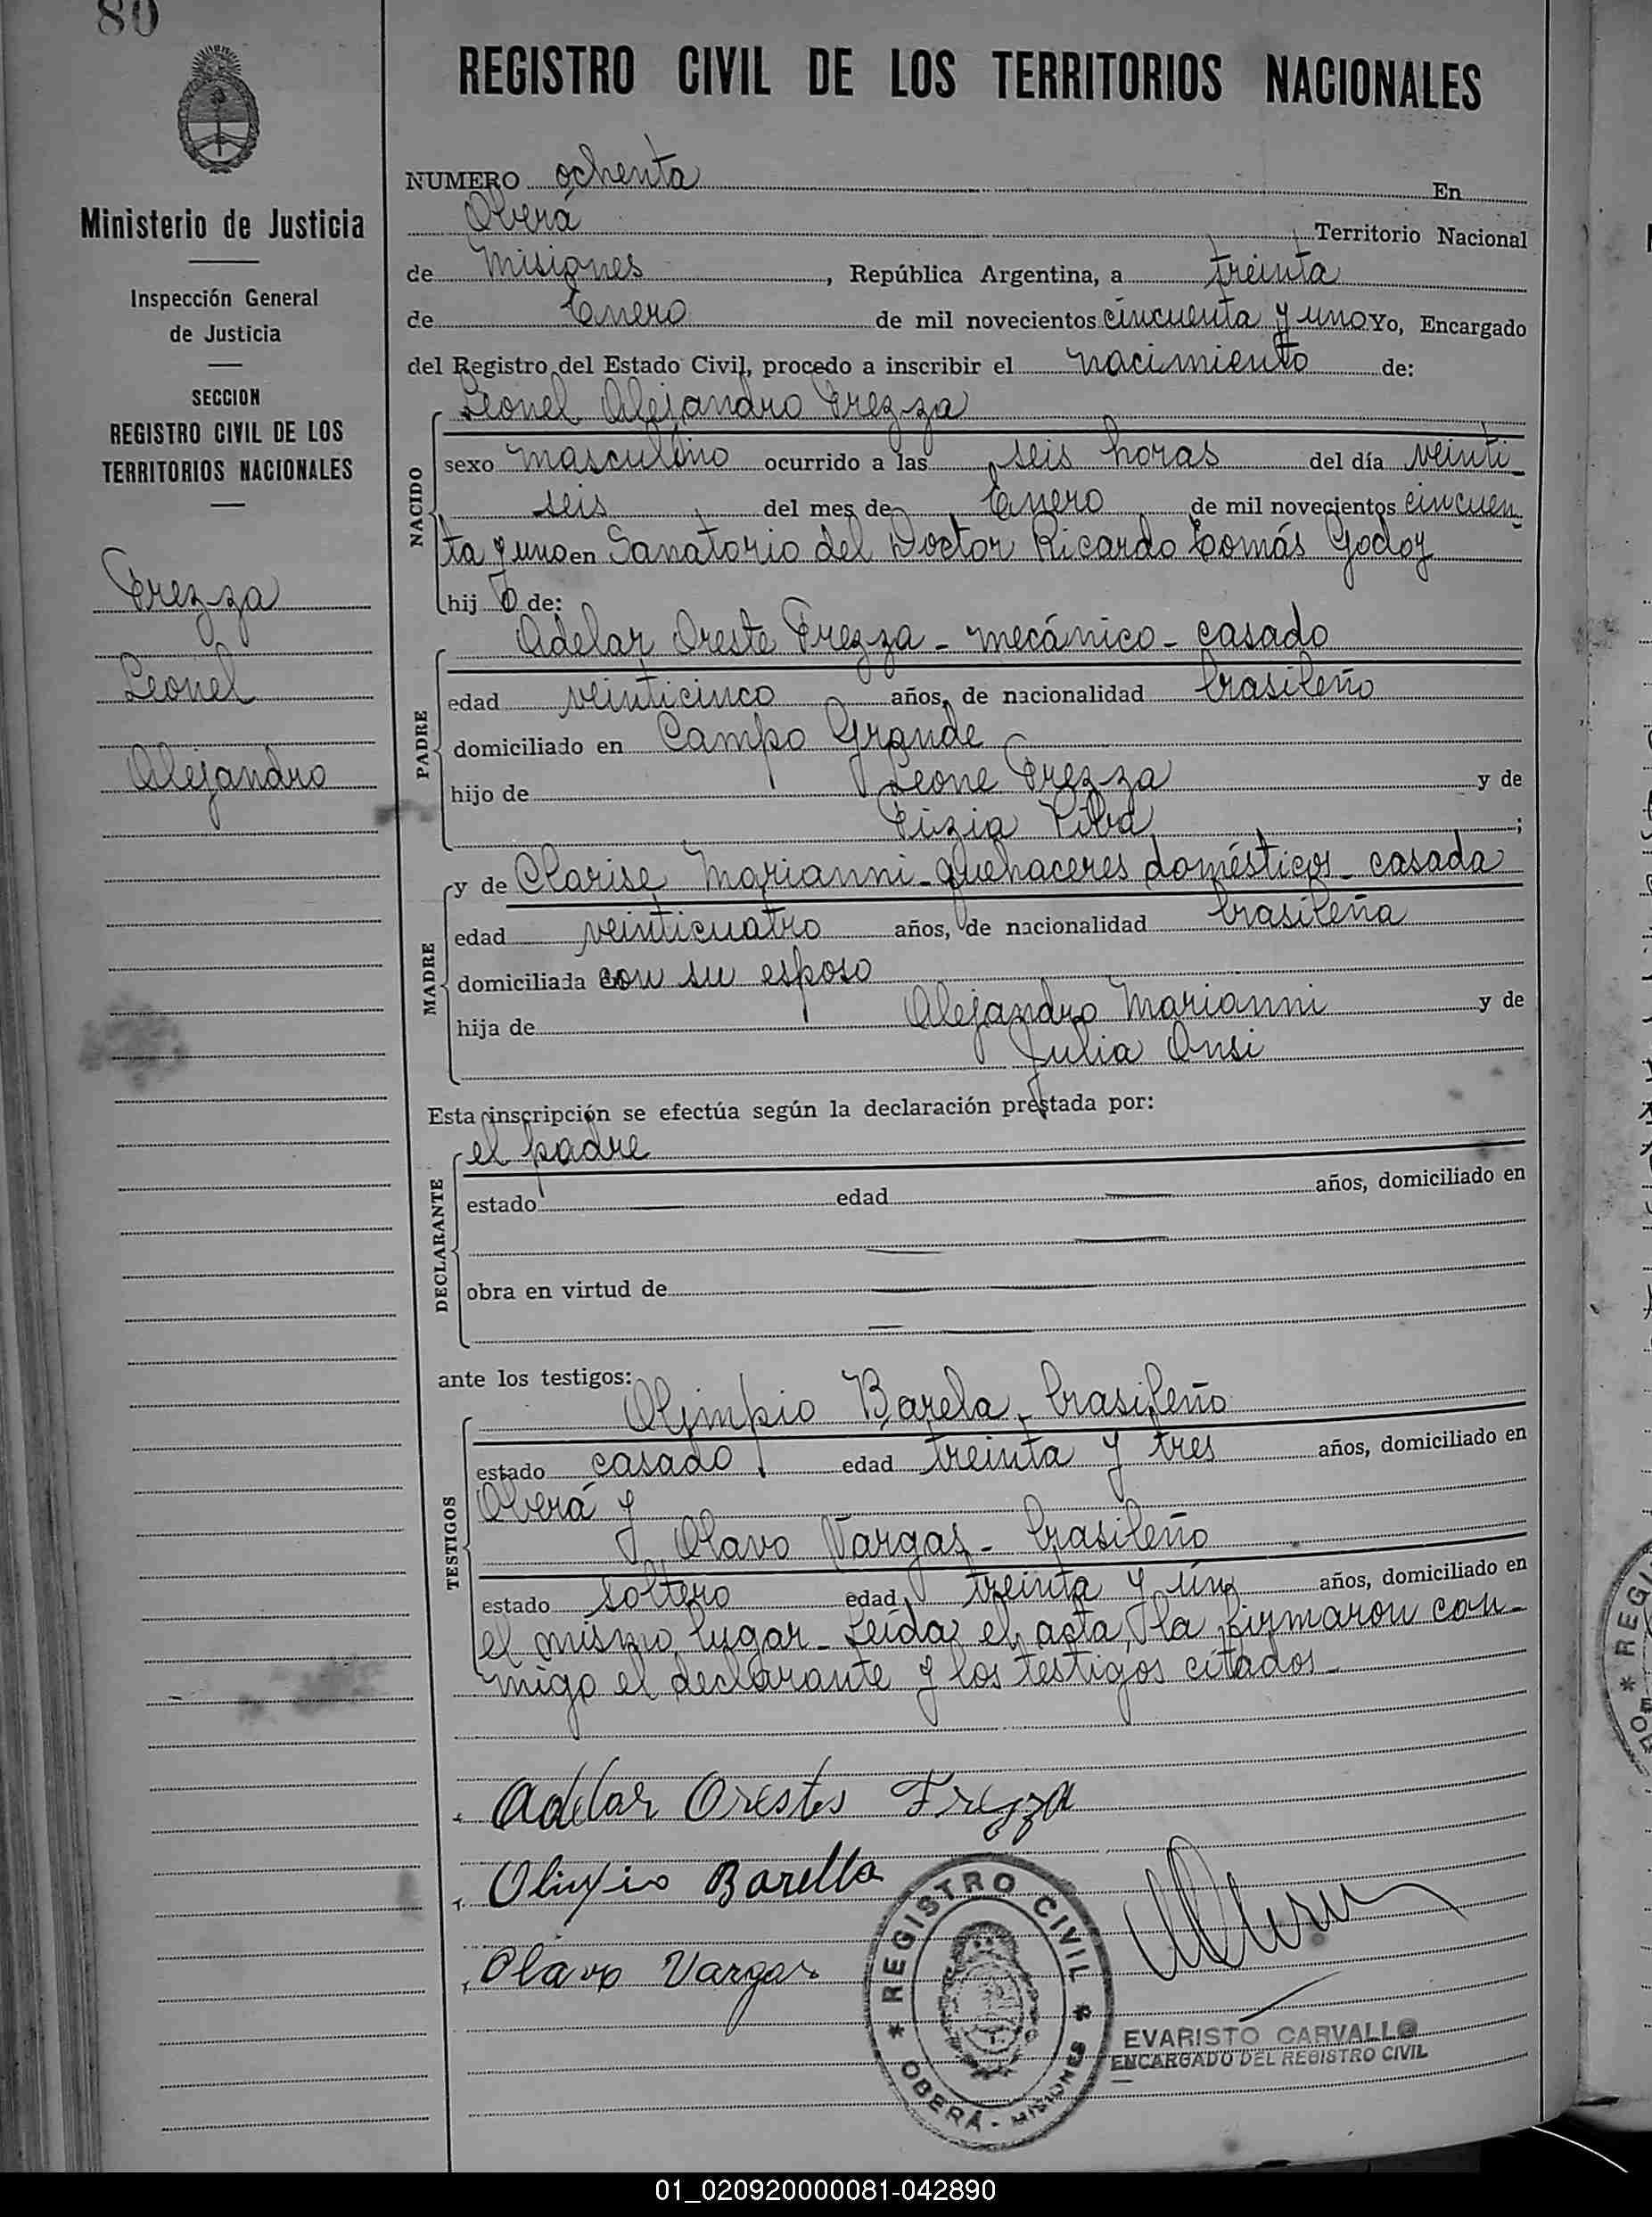 80
REGISTRO CIVIL DE LOS TERRITORIOS NACIONALES
Ministerio de Justicia
Inspección General
de Justicia
SECCION
REGISTRO CIVIL DE LOS
TERRITORIOS NACIONALES
Frezza
Leonel
Alejandro
NUMERO ochenta En
Oberá Territorio Nacional
de Misiones, República Argentina, a treinta
de Enero de mil novecientos cincuenta y uno Yo, Encargado
del Registro del Estado Civil, procedo a inscribir el nacimiento de:
Leonel Alejandro Frezza
NACIDO
sexo masculino ocurrido a las seis horas del día veinti-
seis del mes de Enero de mil novecientos cincuen-
ta y uno en Sanatorio del Doctor Ricardo Tomás Godoy
hij o de:
Adelar Oreste Frezza - mecánico - casado
PADRE
edad veinticinco años, de nacionalidad brasileño
domiciliado en Campo Grande
hijo de Leone Frezza y de
;
y de Clarise Marianni - quehaceres domésticos - casada
MADRE
edad veinticuatro años, de nacionalidad brasileña
domiciliada con su esposo
hija de Alejandro Marianni y de
Julia Onsi
Esta inscripción se efectúa según la declaración prestada por:
el padre
DECLARANTE
estado edad años, domiciliado en
obra en virtud de
ante los testigos:
Olimpio Barela - brasileño
TESTIGOS
estado casado edad treinta y tres años, domiciliado en
Oberá y
Olavo Vargas - brasileño
estado soltero edad treinta y un años, domiciliado en
el mismo lugar - Leída el acta, la firmaron con-
migo el declarante y los testigos citados -
Adelar Orestes Frezza
Olimpio Barella
Olavo Vargas
REGISTRO CIVIL
OBERÁ - MISIONES
EVARISTO CARVALLO
ENCARGADO DEL REGISTRO CIVIL
01_020920000081-042890